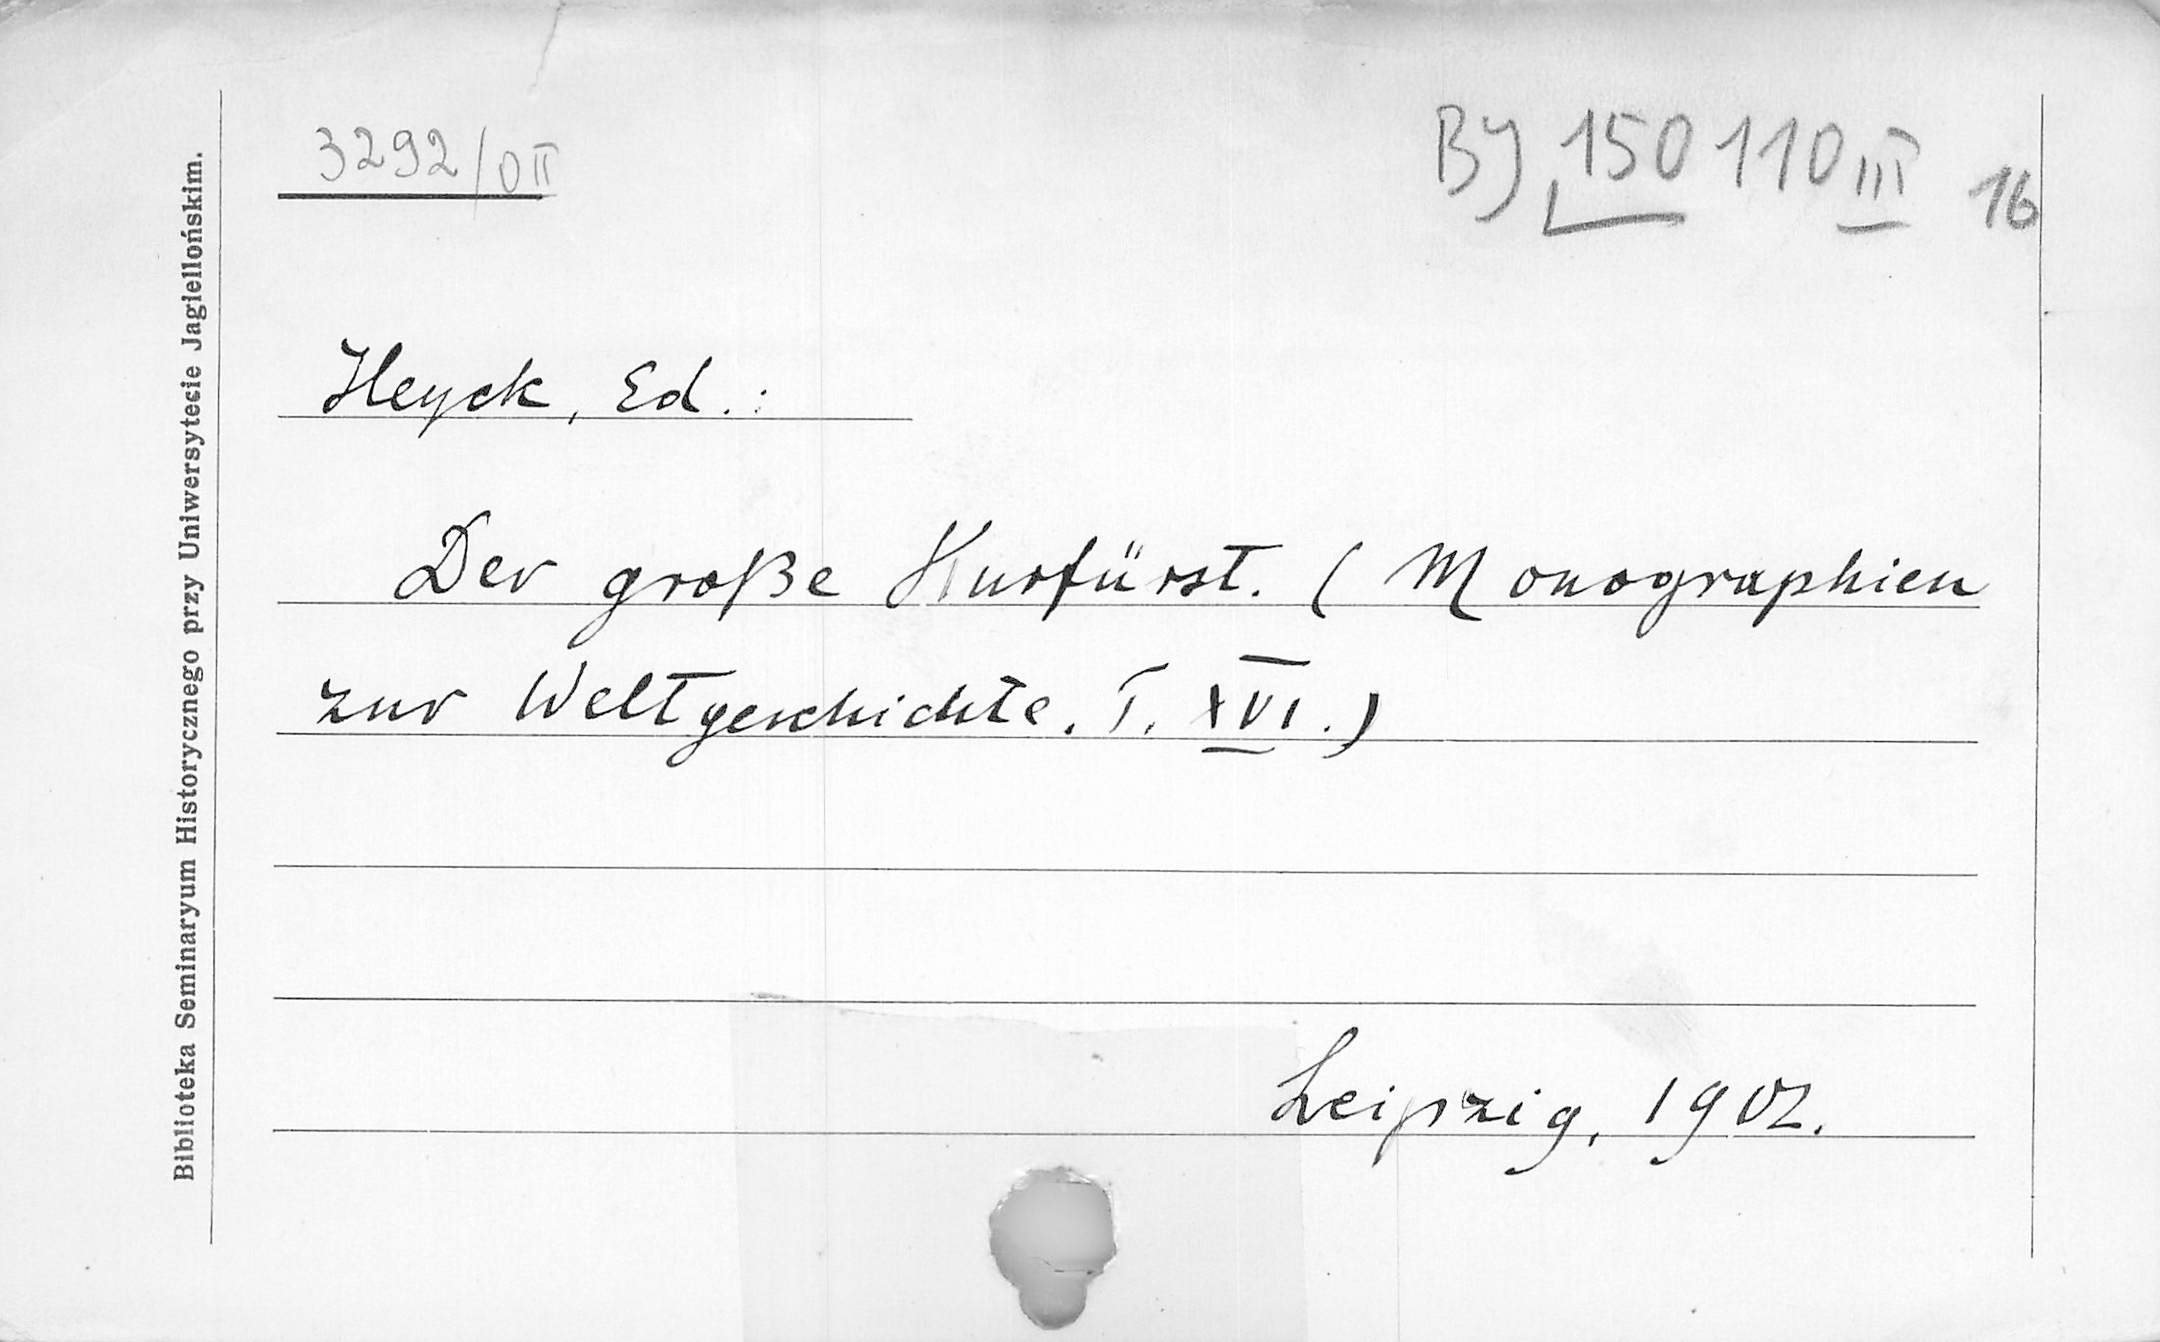 3292/0II
BJ 150110 III 16
Heyck, Ed.:
Der große Kurfürst. (Monographien
zur Weltgeschichte. T. XVI.)
Leipzig, 1902.
Biblioteka Seminaryum Historycznego przy Uniwersytecie Jagiellońskim.